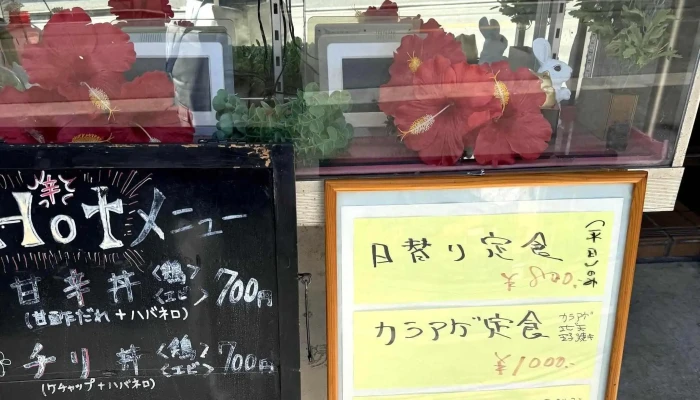 辛
Hot メニュー
甘辛丼 <鶏> <エビ> 700円
(甘酢だれ+ハバネロ)
チリ丼 <鶏> <エビ> 700円
(ケチャップ+ハバネロ)
日替り定食 (平日のみ)
カラアゲ定食 カラアゲ
玉子焼き
¥1000